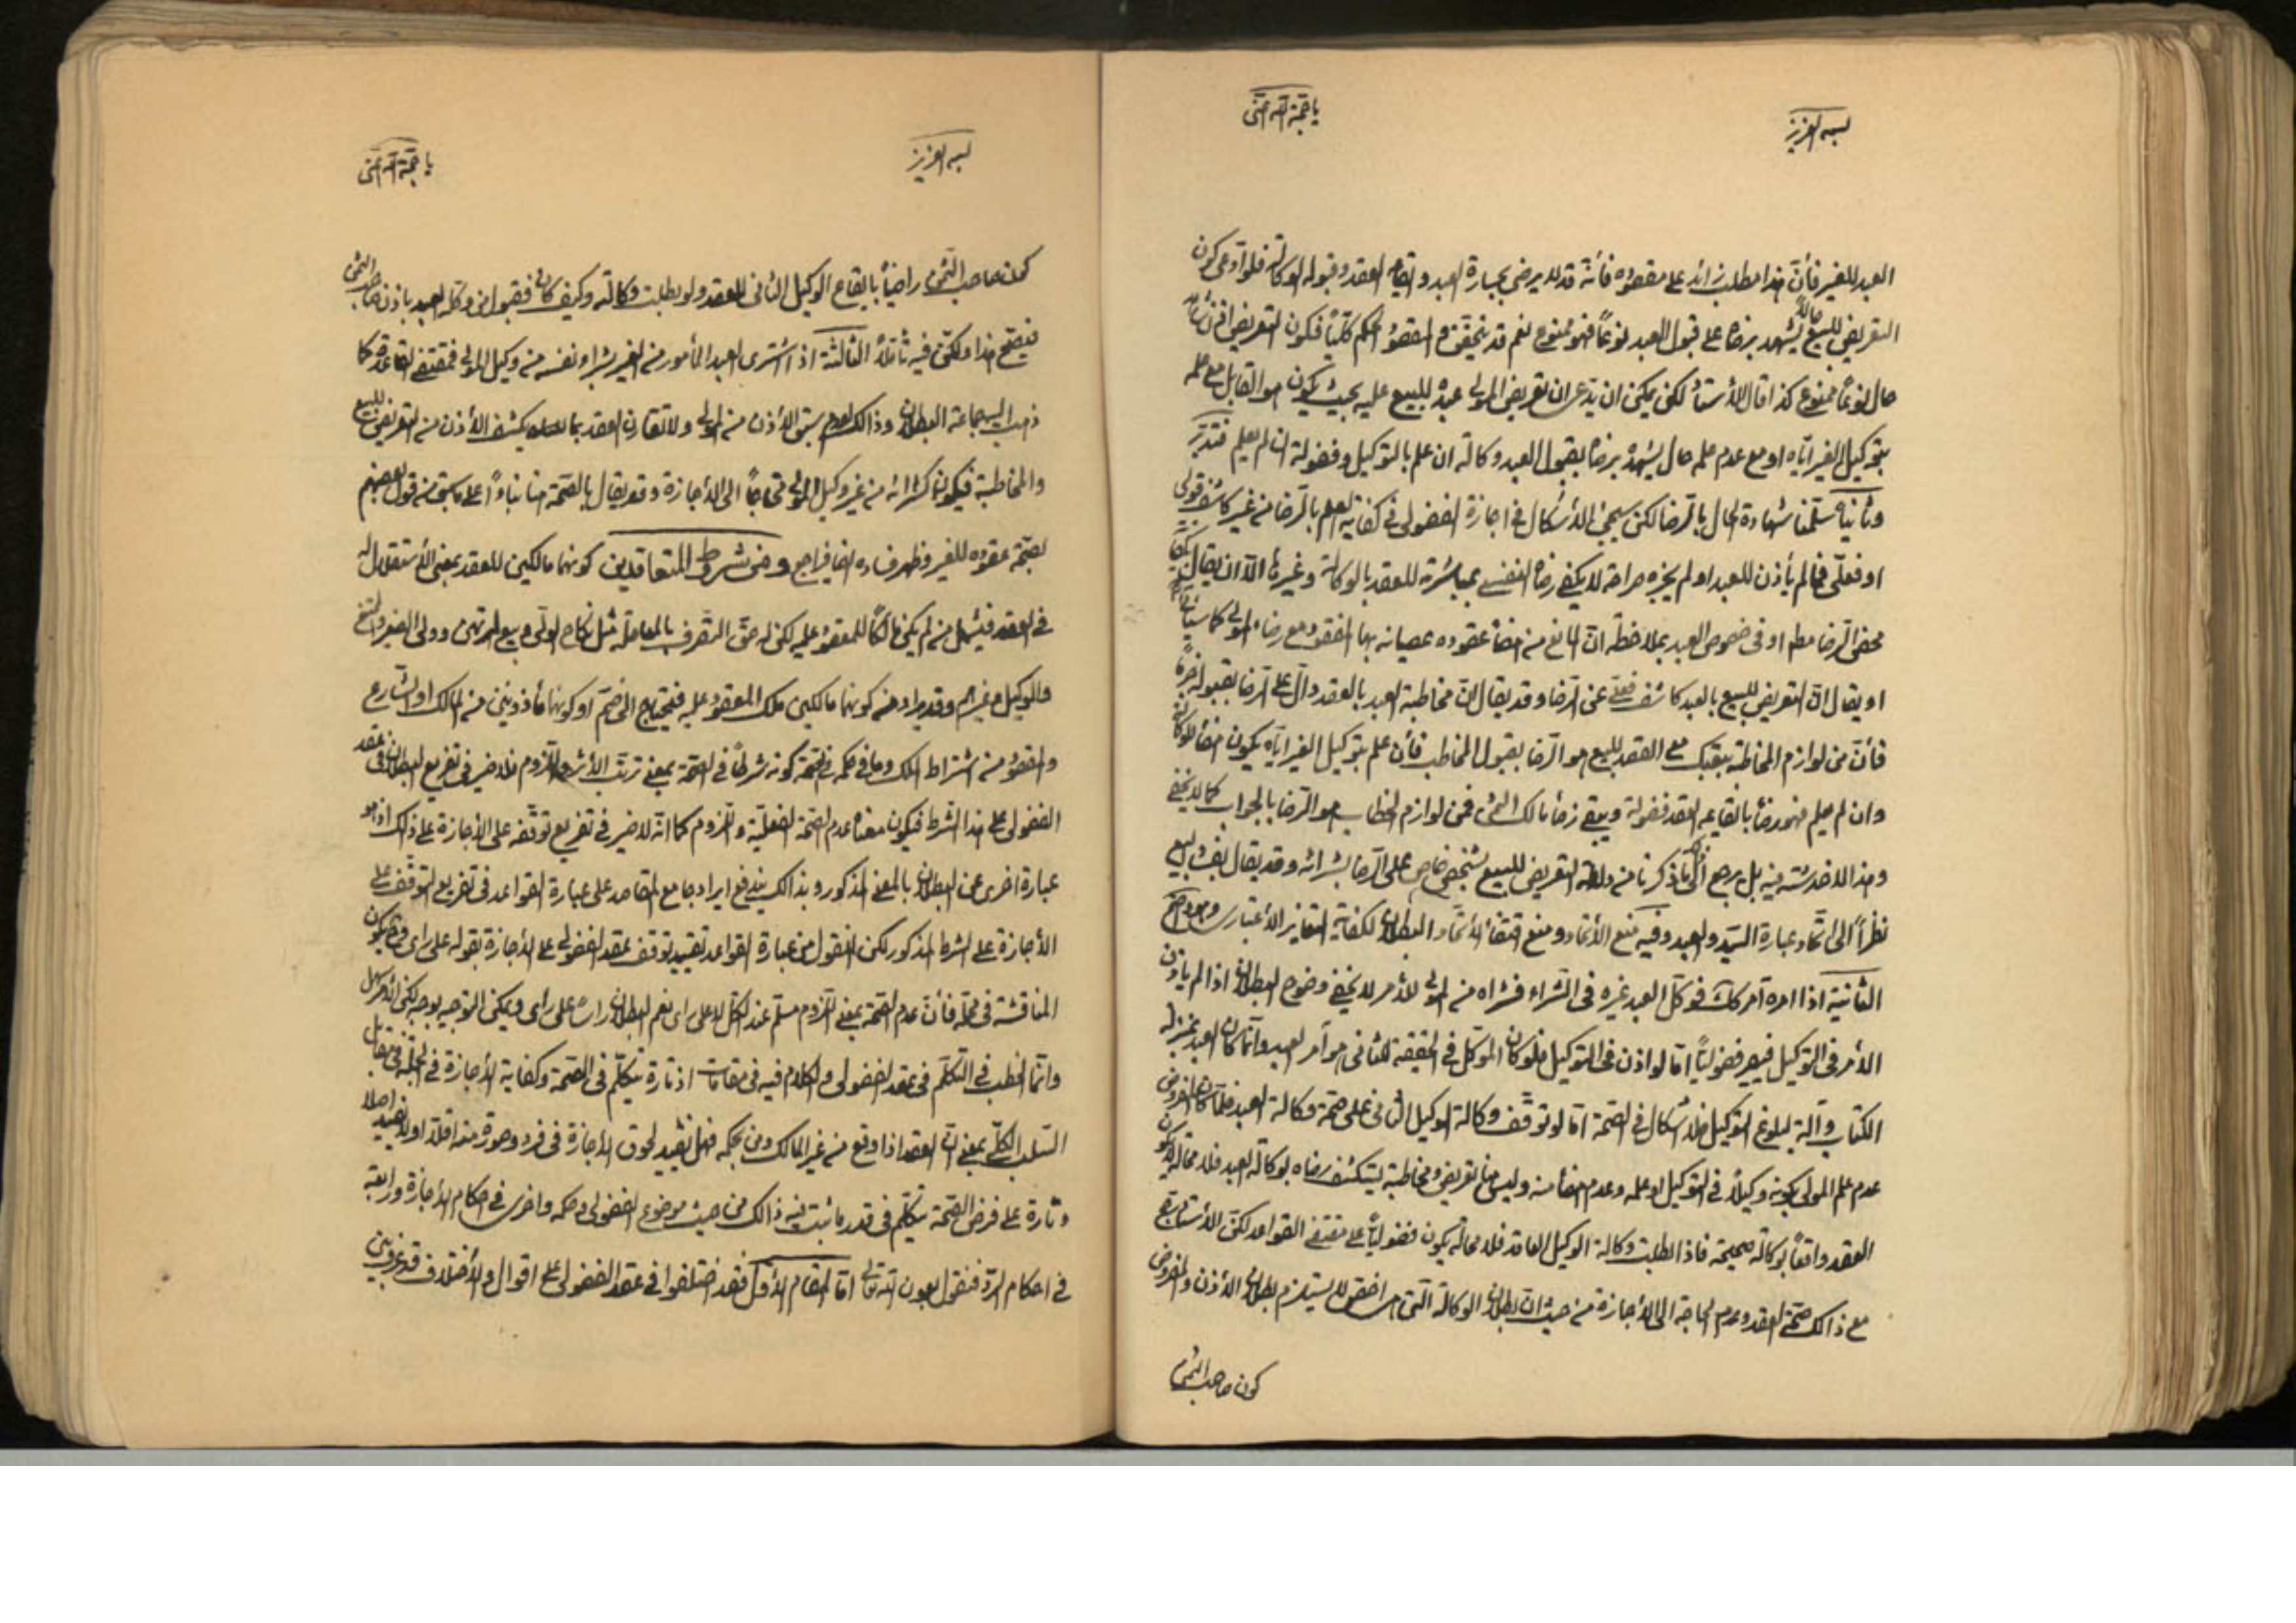 بسمه العزيز
يا حجة الله
العبد للغير فأن هذا مطلب زائد على مقصوده فأنه قد لا يرضى بعبارة العبد وايقاعه العقد وقبوله الوكالة فلو ادعى كون
التعريض للبيع حالاً يشهد برضاه على قبول العبد نوعاً فهو ممنوع نعم قد يتحقق والمقصود الحكم كلياً فكون التعريض
حال نوعاً ممنوع كذا قال الأستاد لكن يمكن ان يدعى ان تعريض المولى عبده للبيع عليه بحيث يكون هو القابل مع علمه
بتوكيل الغير اياه او مع عدم علمه حال يشهد برضاه بقبول العبد وكالة ان علم بالتوكيل وفضولة ان لم يعلم فتدبر
وثانياً سلمنا شهادة الحال بالرضا لكن سيجئ الأشكال في اجازة الفضولى في كفاية العلم بالرضا من غير كاشف قولى
او فعلى فما لم يأذن للعبد او لم يجزه صراحة لا يكفى رضاه النفسى بمباشرة للعقد بالوكالة وغيرها الا ان يقال
محض الرضا مطلقا او في خصوص العبد بملاحظة ان المانع من امضاء عقوده عصيانه بها المفقود مع رضاء المولى كما سيأتى
او يقال ان التعريض للبيع بالعبد كاشف فعلى عن الرضا وقد يقال ان مخاطبة العبد بالعقد دال على الرضا بقبوله
فأن من لوازم المخاطبة ببعتك مع القصد للبيع هو الرضا بقبول المخاطب فأن علم بتوكيل الغير اياه يكون امضاء للوكالة
وان لم يعلم فهو رضاء بايقاعه العقد فضولة ويبقى رضاء مالك الثمن فمن لوازم الخطاب هو الرضا بالجواب كما لا يخفى
وهذا لا خدشة فيه بل يرجع الى ما ذكرنا من دلالة التعريض للبيع بشخص خاص على الرضا بشرائه وقد يقال بفساد البيع
نظراً الى اتحاد عبارة السيد والعبد وفيه منع الأتحاد ومنع اقتضاء الأتحاد البطلان لكفاية التغاير الأعتبارى وهو واضح
الثانية اذا امره آمر كك فوكل العبد غيره في الشراء فشراه من المولى للأمر لا يخفى وضوح البطلان اذا لم يأذن
الأمر في التوكيل فيصير فضولياً اما لو اذن في التوكيل فلو كان الموكل في الحقيقة للثانى هو آمر العبد وانما كان العبد بمنزلة
الكتاب وآلة لبلوغ التوكيل فلا اشكال في الصحة اما لو توقف وكالة الوكيل الثانى على صحة وكالة العبد فلما كان المفروض
عدم علم المولى بكونه وكيلاً في التوكيل او علمه وعدم امضائه وليس هنا تعريض ومخاطبة ليستكشف رضاه بوكالة العبد فلا محالة لا يكون
العقد واقعاً بوكالة صحيحة فاذا بطلت وكالة الوكيل العاقد فلا محالة يكون فضولياً على مقتضى القواعد لكن الأستاد رجح
مع ذالك صحة العقد وعدم الحاجة الى الأجازة من حيث ان بطلان الوكالة التى هى اخص لا يستلزم بطلان الأذن والمفروض
كون صاحب الثمن
بسمه العزيز
يا حجة الله
كون صاحب الثمن راضياً بايقاع الوكيل الثانى للعقد ولو بطلت وكالته وكيف كان فقبول من وكله العبد باذن صاحب الثمن
فيصح هذا ولكن فيه تأملاً الثالثة اذا اشترى العبد المأمور من الغير بشراء نفسه من وكيل المولى فمقتضى القاعدة كما
ذهب اليه جماعة البطلان وذالك لعدم سبق الأذن من المولى ولا تقارن العقد بما يكشف الأذن من التعريض للبيع
والمخاطبة فيكون كشرائه من غير وكيل المولى محتاجاً الى الأجازة وقد يقال بالصحة هنا بناءاً على ما سبق من قول بعضهم
بصحة عقوده للغير وظهر فساده انفا فراجع ومن شروط المتعاقدين كونهما مالكين للعقد بمعنى الأستقلال
في العقد فيشمل من لم يكن مالكاً للمعقود عليه لكن له حق التصرف بالمعاملة مثل نكاح الولى وبيع المرتهن وولى الصغير
والوكيل وغيرهم وقد يراد منه كونهما مالكين ملك المعقود عليه فيحتاج الى ضم او كونهما مأذونين من المالك او الشارع
والمقصود من اشتراط الملك وما في حكمه في الصحة كونه شرطاً في الصحة بمعنى ترتب الأثر واللزوم فلا ضير في تفريع البطلان في عقد
الفضولى على هذا الشرط فيكون معناه عدم الصحة الفعلية واللزوم كما انه لا ضير في تفريع توقفه على الأجازة على ذالك اذ هو
عبارة اخرى عن البطلان بالمعنى المذكور وبذالك يندفع ايراد جامع المقاصد على عبارة القواعد في تفريع التوقف على
الأجازة على الشرط المذكور لكن المنقول من عبارة القواعد تقييد توقف عقد الفضولى على الأجازة بقوله على رأى فتكون
المناقشة في محله فأن عدم الصحة بمعنى اللزوم مسلم عند الكل لا على رأى نعم البطلان رأساً على رأى ويمكن التوجيه بوجه لكن الأمر سهل
وانما الخطب في التكلم في عقد الفضولى والكلام فيه في مقامات اذ تارة نتكلم في الصحة وكفاية الأجازة في الجملة في مقابل
السلب الكلى بمعنى ان العقد اذا وقع من غير المالك ومن بحكمه فهل يفيد لحوق الأجازة في فرد وصورة منه اقلاً او لا يفيد اصلا
وتارة على فرض الصحة نتكلم في قدر ما ثبت فيه ذالك من حيث موضوع الفضولى وحكمه واخرى في احكام الأجازة ورابعة
في احكام الرد فنقول بعون الله تعالى اما المقام الأول فقد اختلفوا في عقد الفضولى على اقوال والأختلاف